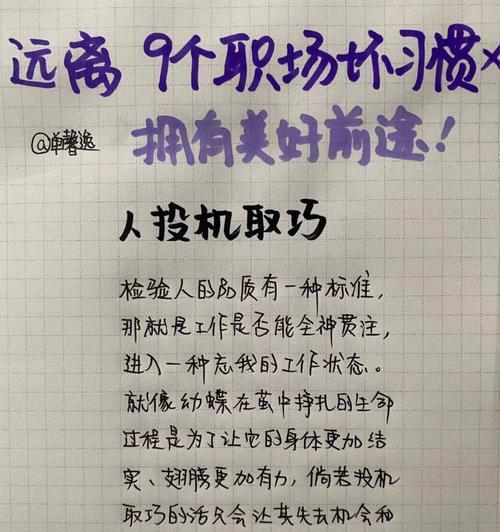 远离 9个职场坏习惯×
@单馨逸
拥有美好前途!
1投机取巧
检验人的品质有一种标准,
那就是工作是否能全神贯注,
进入一种忘我的工作状态。
就像幼蝶在茧中挣扎的生命
过程是为了让它的身体更加结
实、翅膀更加有力,倘若投机
取巧的话只会让其失去机会和